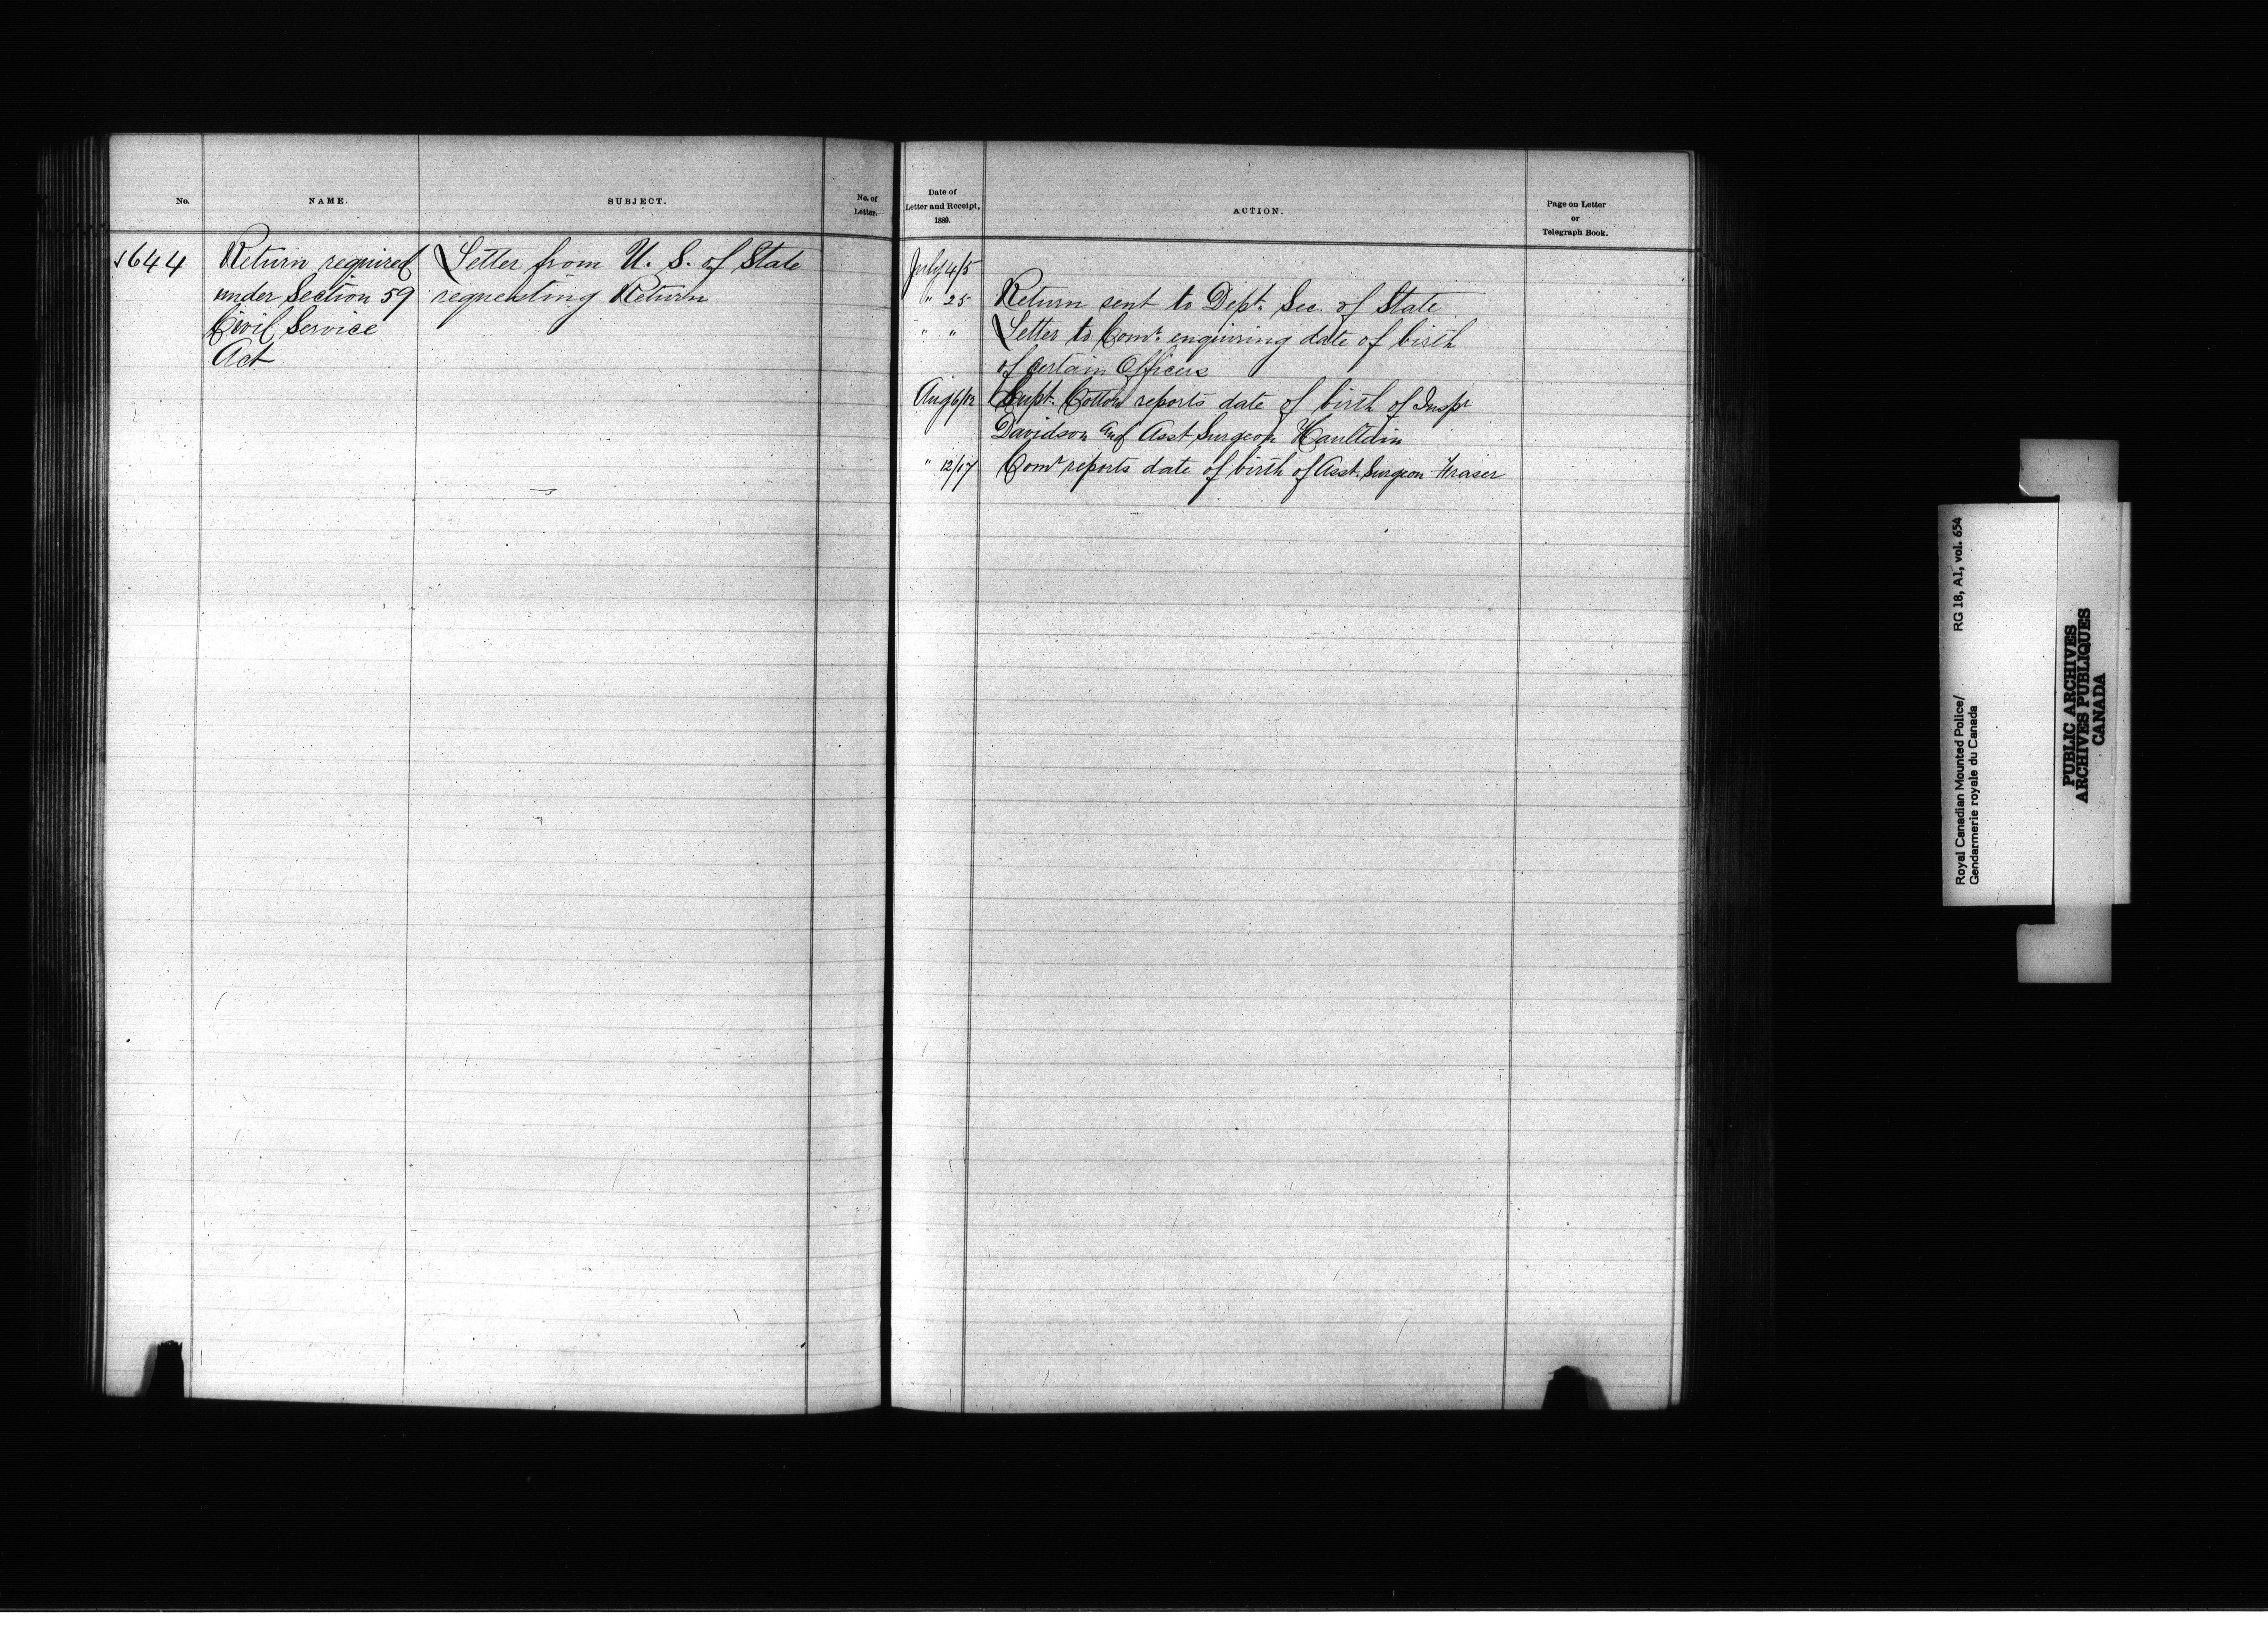 No.
NAME.
SUBJECT.
No. of
Letter.
1644
Return required
under Section 59
Civil Service
Act
Letter from U. S. of State
requesting Return
Date of
Letter and Receipt,
1889.
ACTION.
Page on Letter
or
Telegraph Book.
July 4/5
" 25 Return sent to Dept. Sec. of State
" " Letter to Comr. enquiring date of birth
of certain Officers
Aug 6/12 Supt. Cotton reports date of birth of Inspr
Davidson and Asst Surgeon Haultain
" 12/17 Comr reports date of birth of Asst. Surgeon Fraser
Royal Canadian Mounted Police/ RG 18, A1, vol. 654
Gendarmerie royale du Canada
PUBLIC ARCHIVES
ARCHIVES PUBLIQUES
CANADA